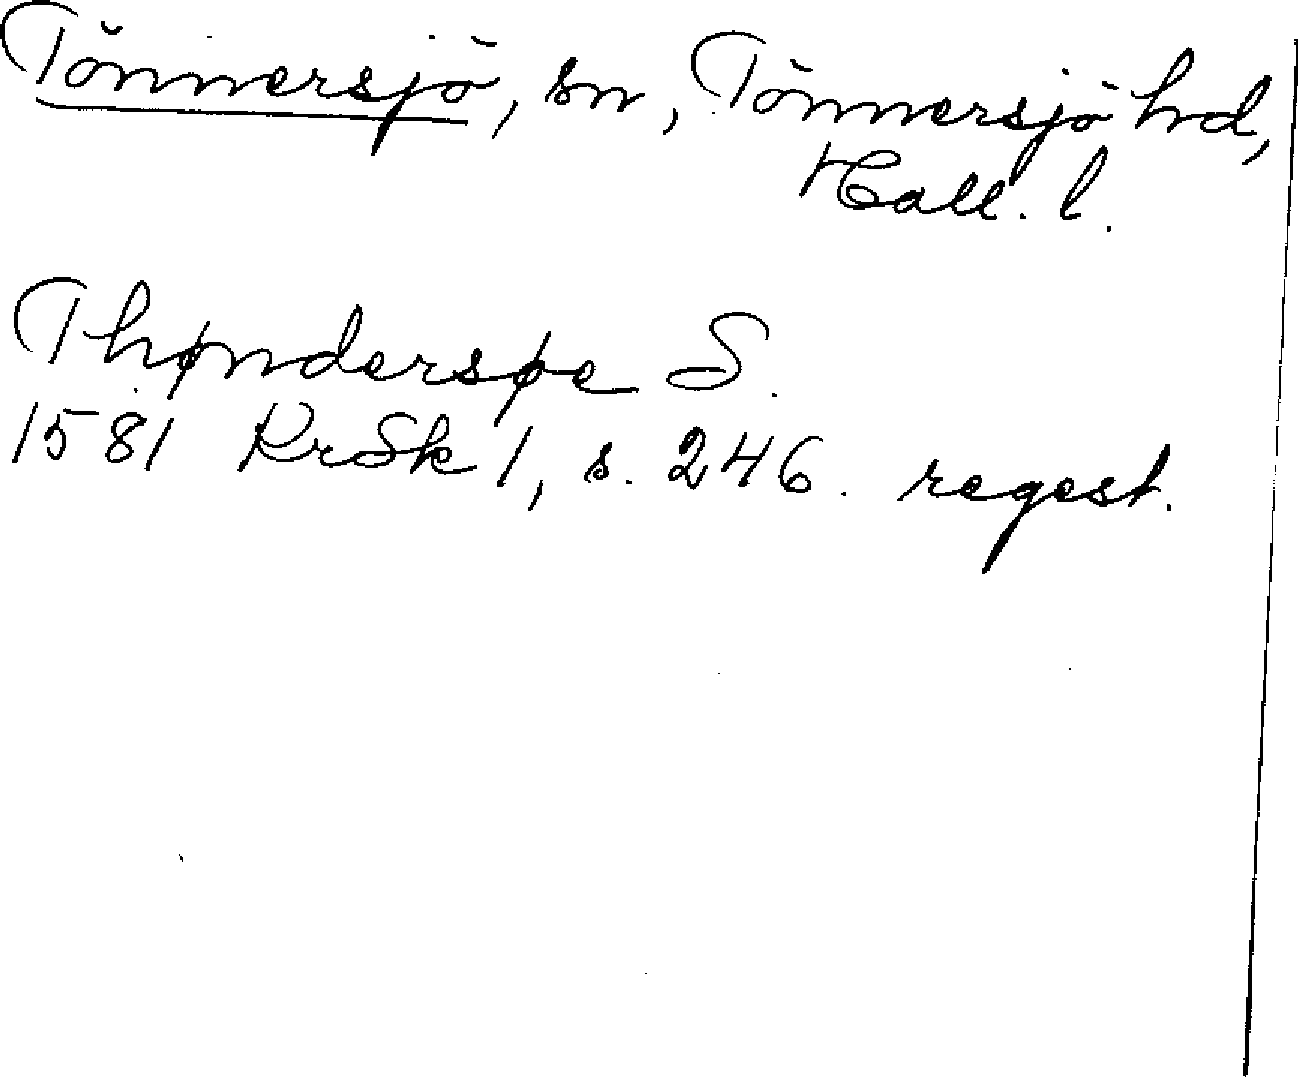 Tönnersjö, sn, Tönnersjö hd,
Hall. l.
Thøndersøe S.
1581 KrSk 1, s. 246. regest.